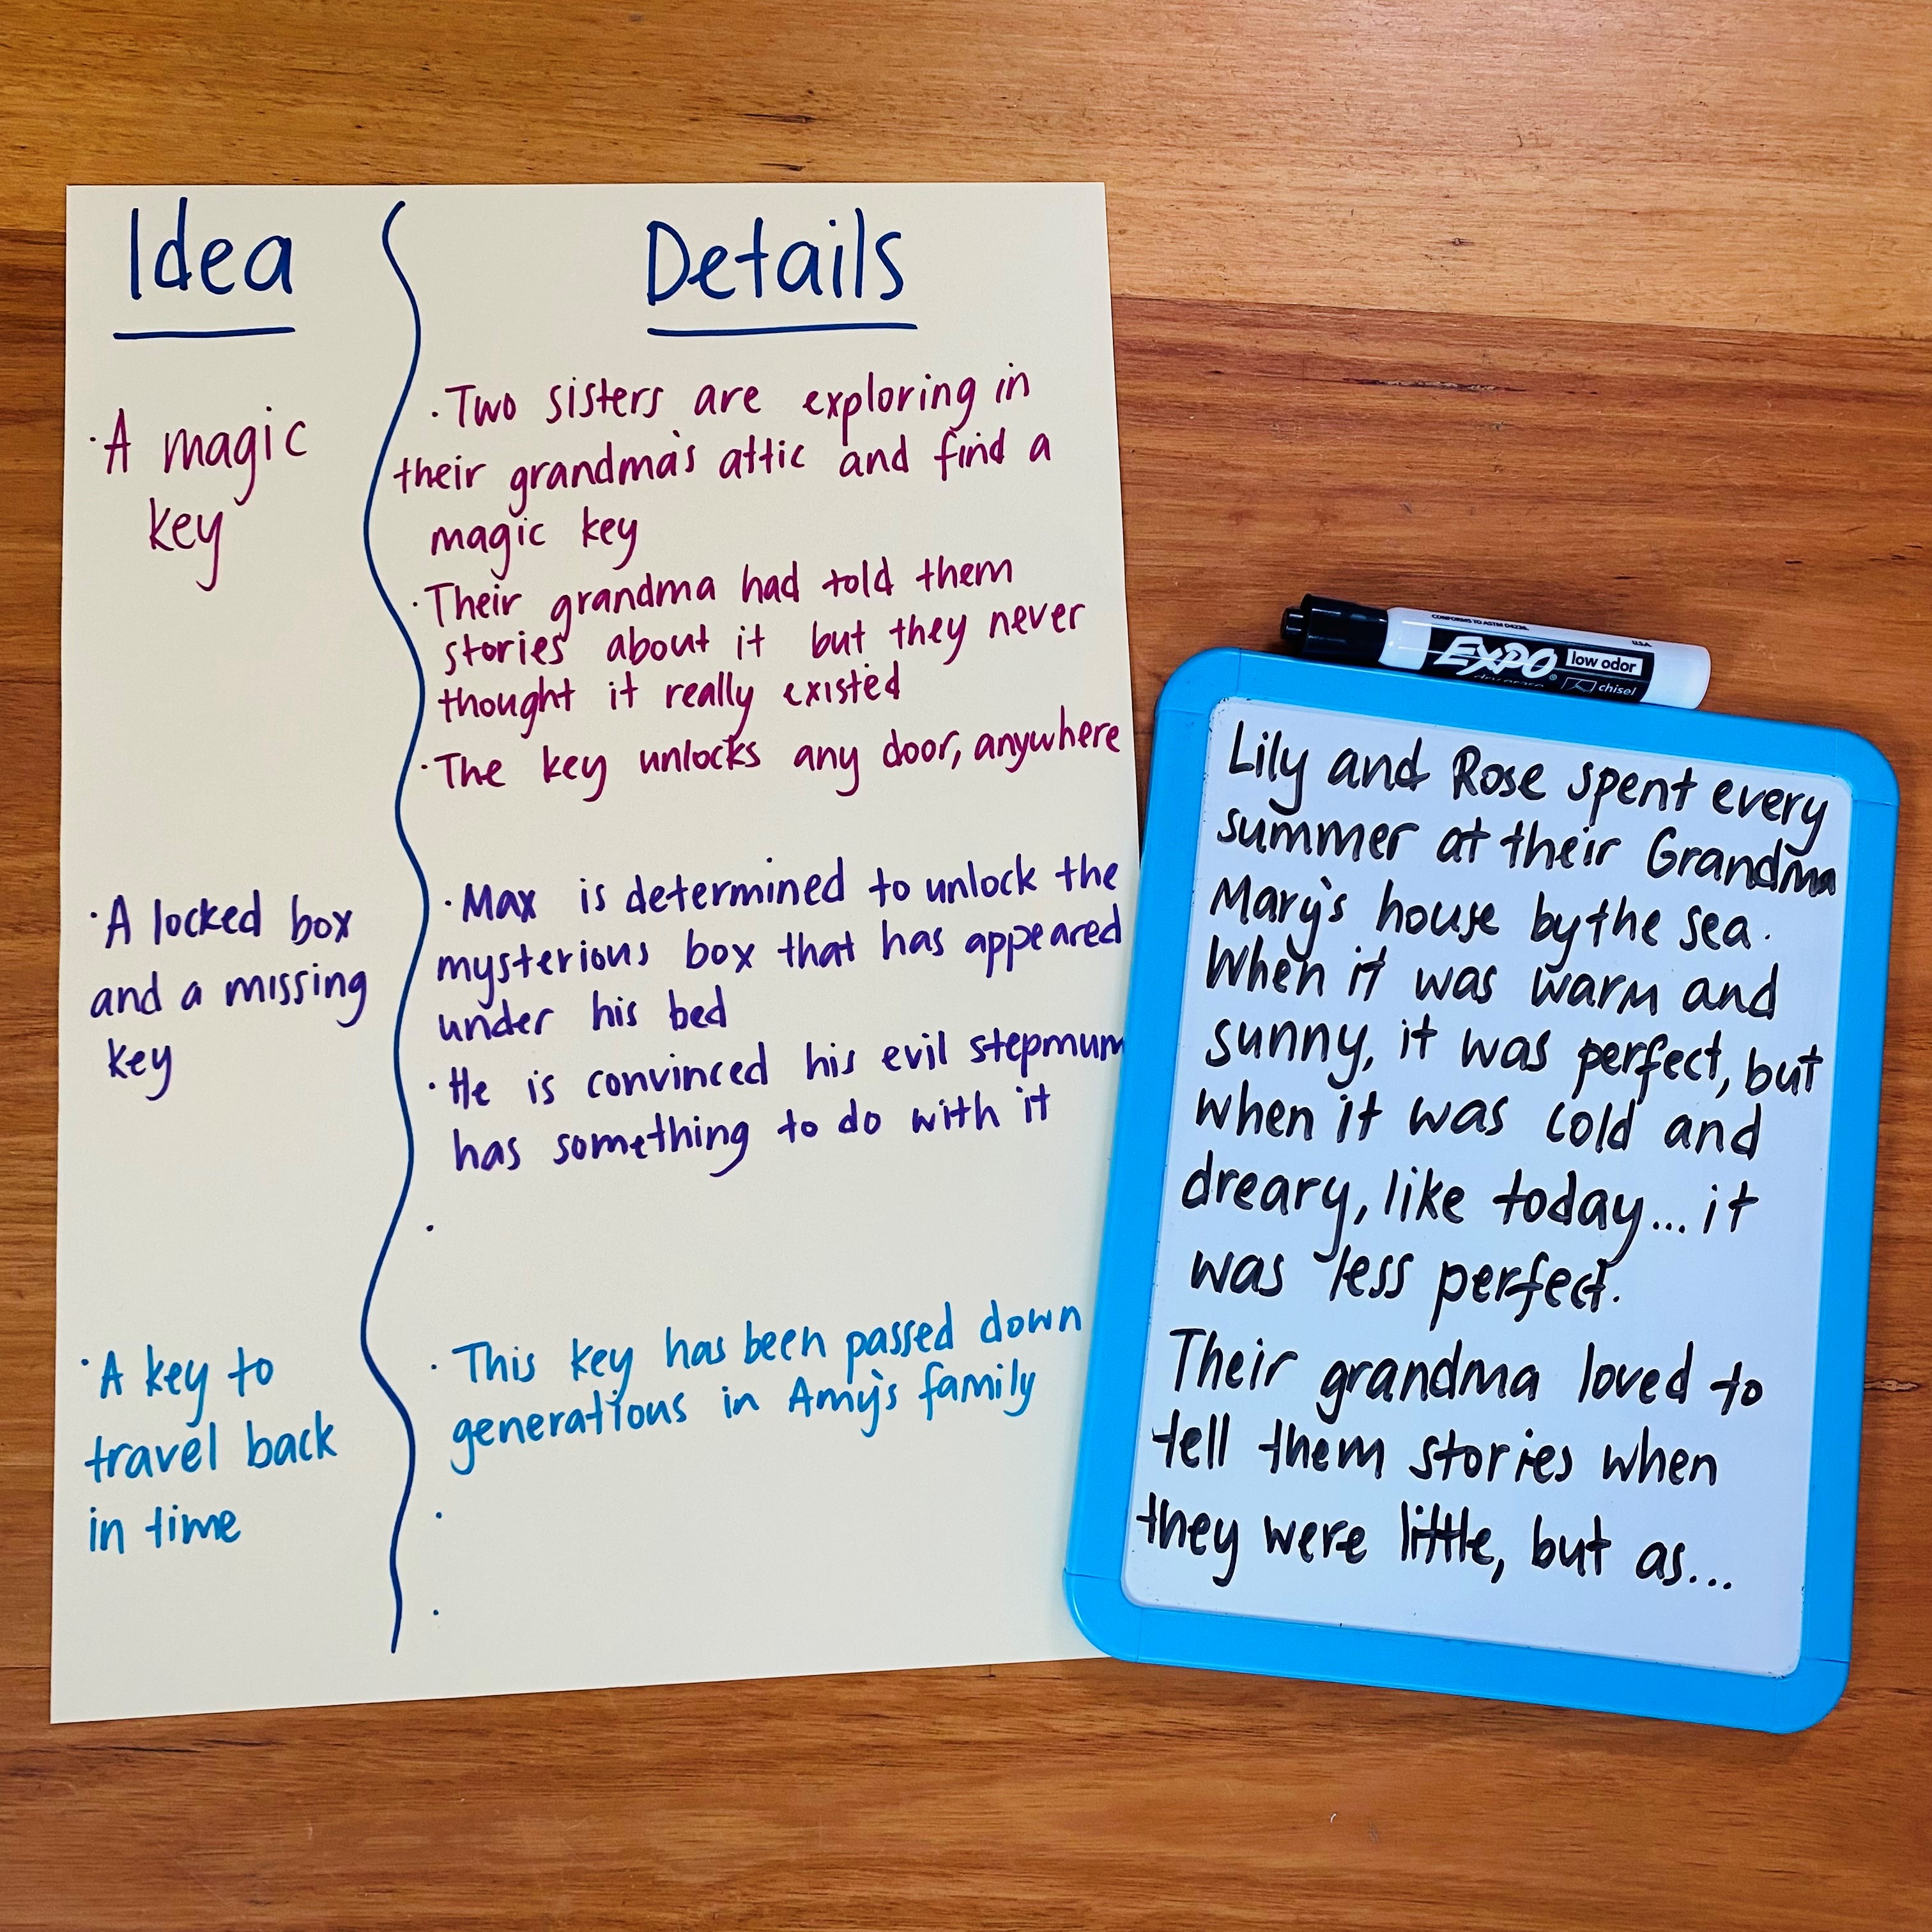 Idea
Details
·A magic
key
·Two sisters are exploring in
their grandma's attic and find a
magic key
·Their grandma had told them
stories about it but they never
thought it really existed
·The key unlocks any door, anywhere
·A locked box
and a missing
key
·Max is determined to unlock the
mysterious box that has appeared
under his bed
·He is convinced his evil stepmum
has something to do with it
·
·A key to
travel back
in time
·This key has been passed down
generations in Amy's family
·
·
CONFORMS TO ASTM D4236
USA
EXPO®
low odor
dry erase
chisel
Lily and Rose spent every
summer at their Grandma
Mary's house by the sea.
When it was warm and
sunny, it was perfect, but
when it was cold and
dreary, like today... it
was less perfect.
Their grandma loved to
tell them stories when
they were little, but as...